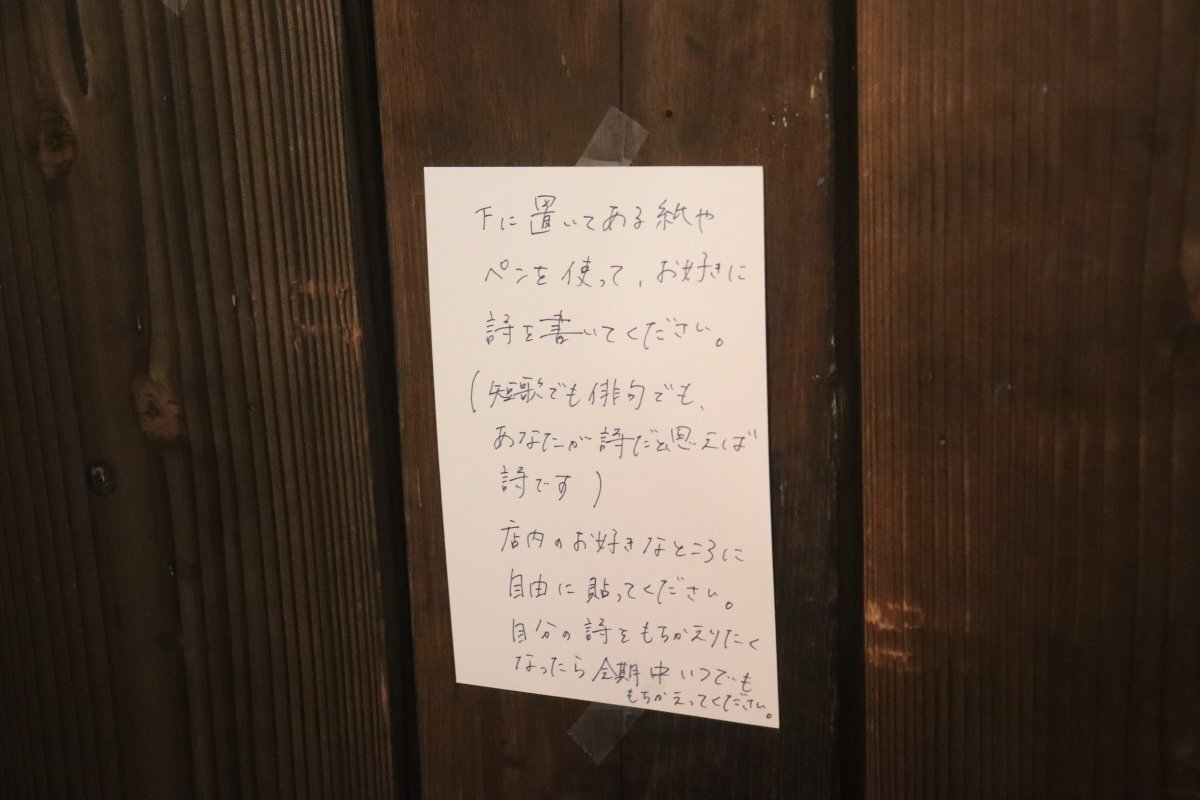 下に置いてある紙や
ペンを使って、お好きに
詩を書いてください。
(短歌でも俳句でも、
あなたが詩だと思えば
詩です)
店内のお好きなところに
自由に貼ってください。
自分の詩をもちかえりたく
なったら会期中いつでも
もちかえってください。